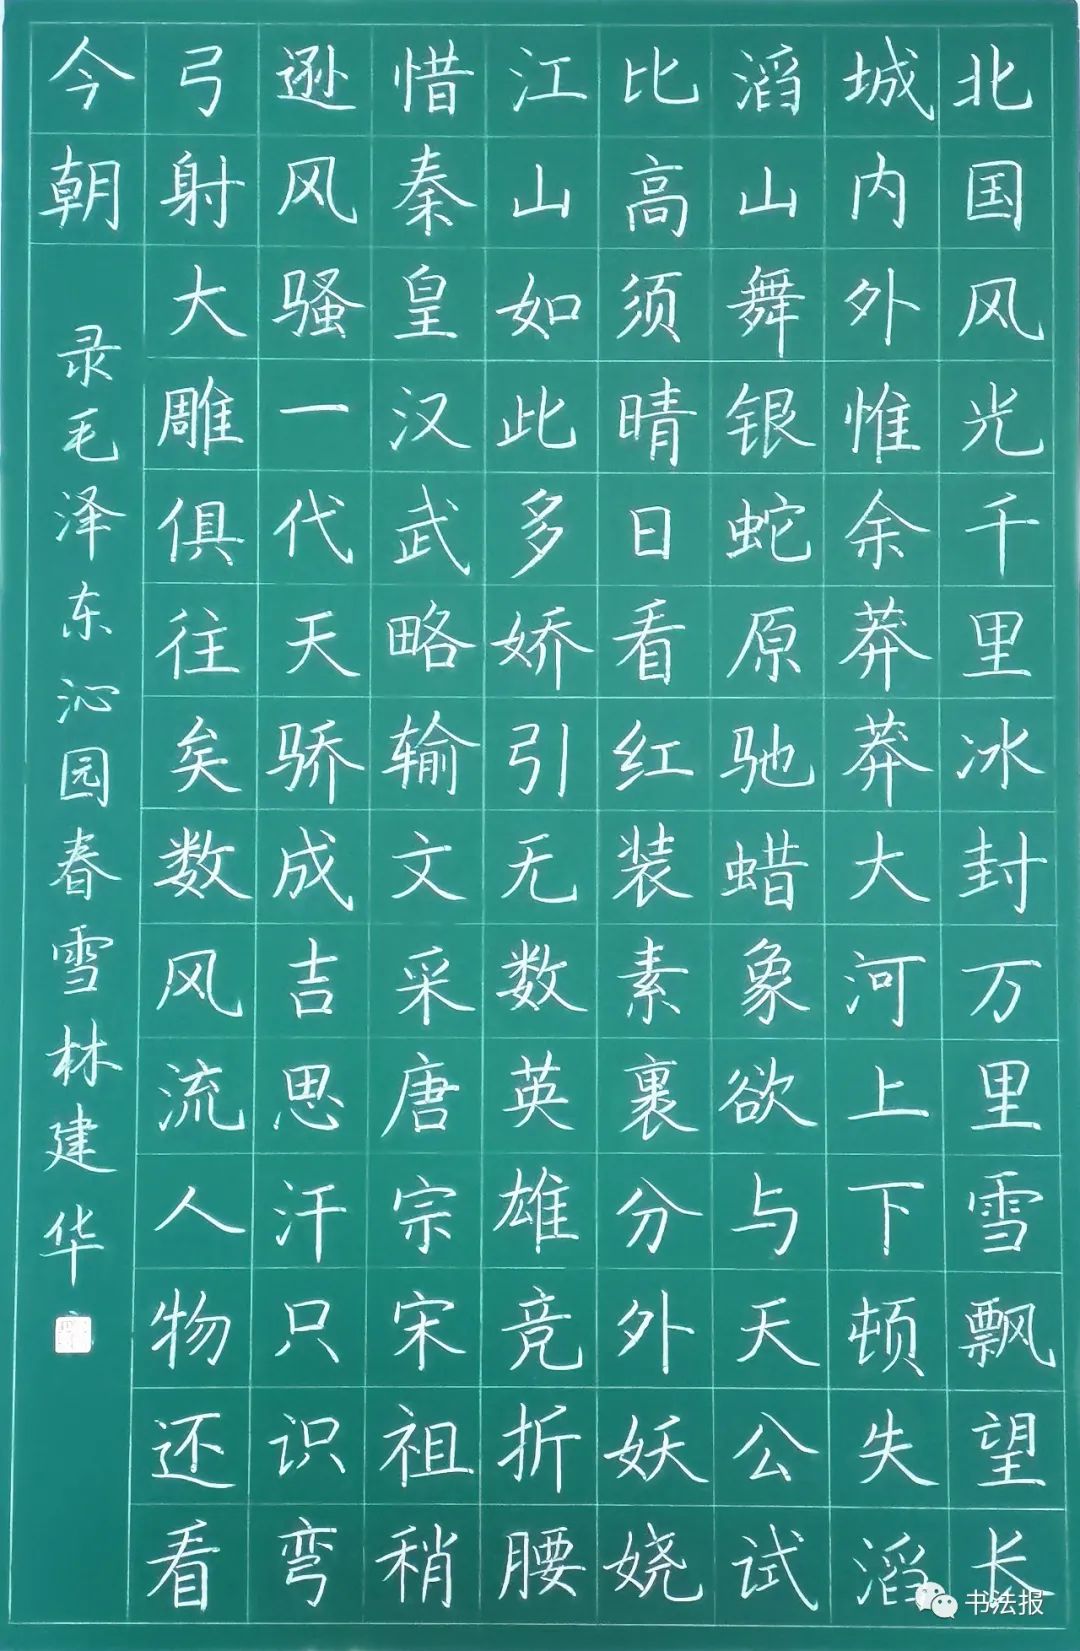 北国风光千里冰封万里雪飘望长
城内外惟余莽莽大河上下顿失滔
滔山舞银蛇原驰蜡象欲与天公试
比高须晴日看红装素裹分外妖娆
江山如此多娇引无数英雄竞折腰
惜秦皇汉武略输文采唐宗宋祖稍
逊风骚一代天骄成吉思汗只识弯
弓射大雕俱往矣数风流人物还看
今朝
录毛泽东沁园春雪林建华
书法报